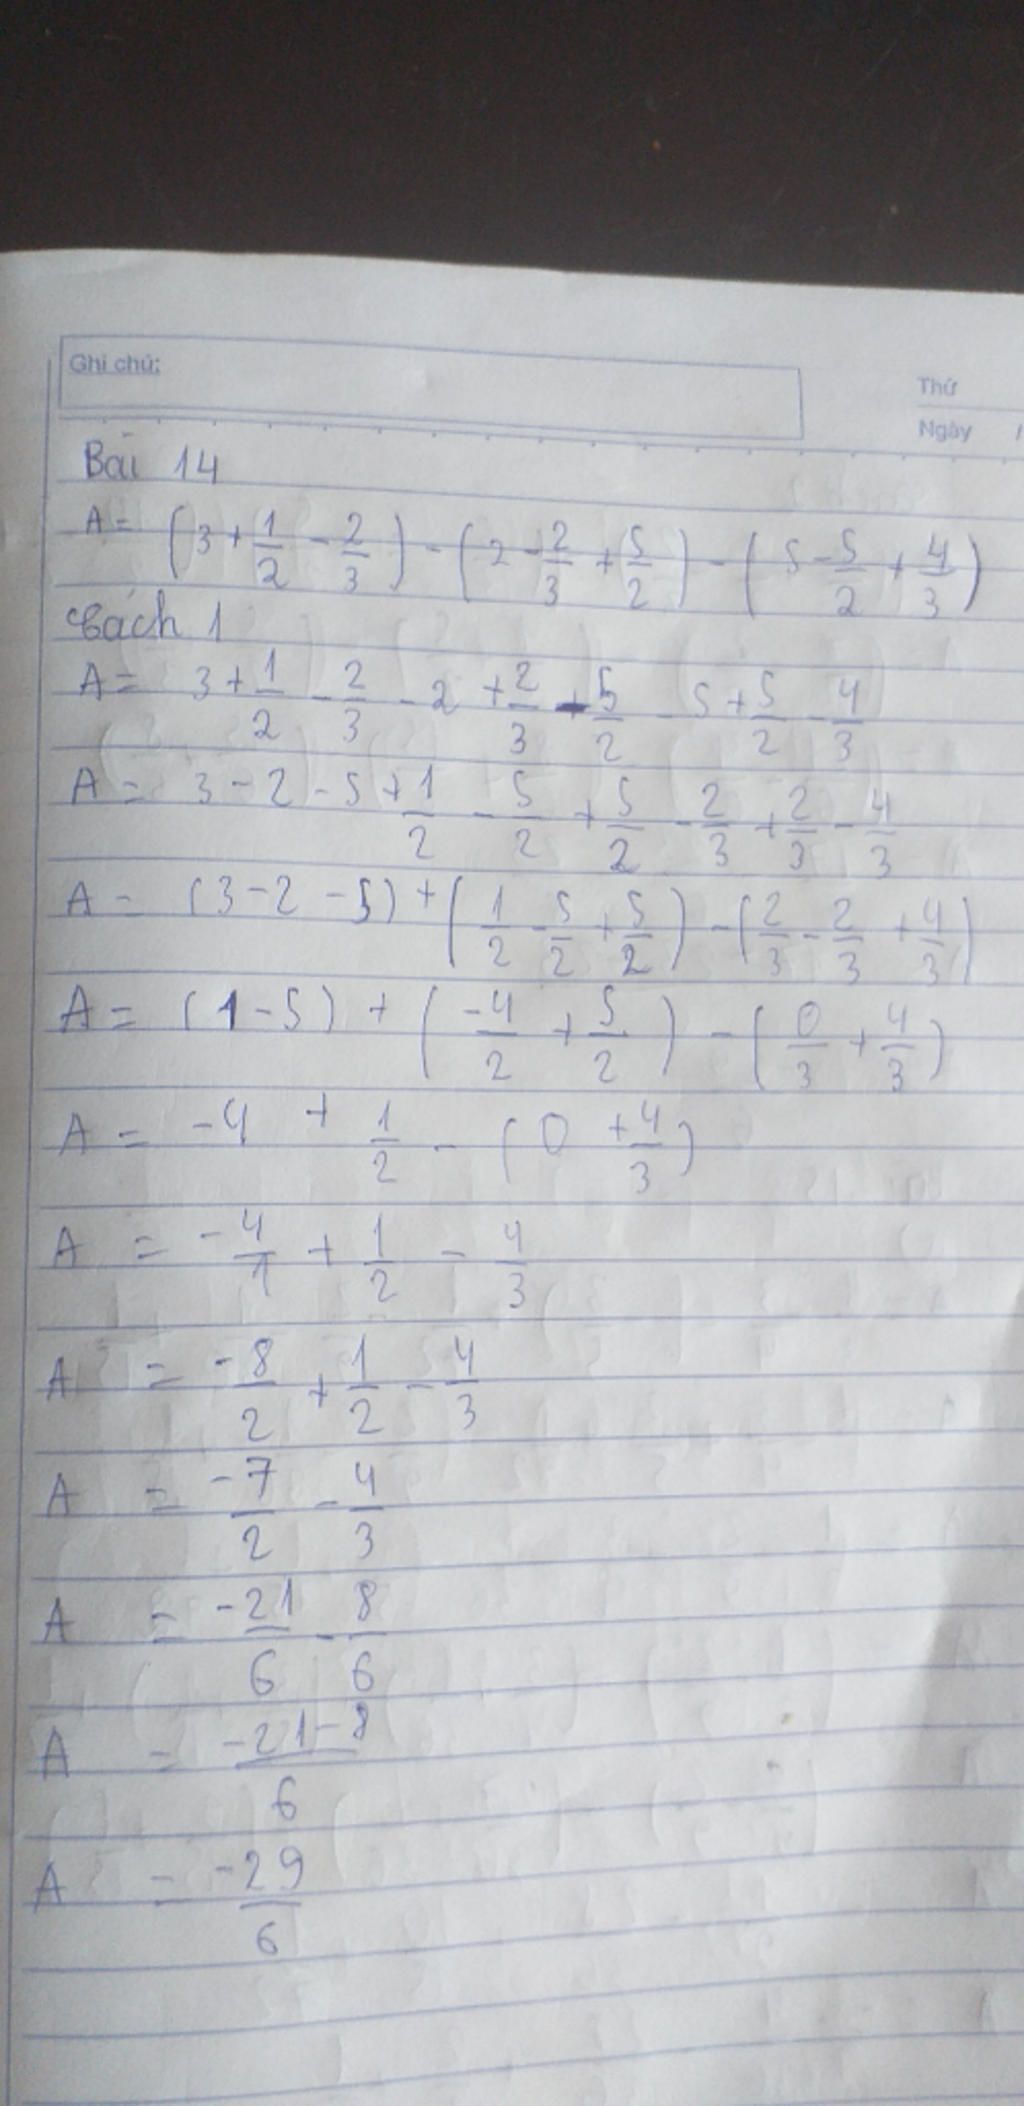 Ghi chú:
Thứ
Ngày /
Bài 14
A = (3 + 1/2 - 2/3) - (2 - 2/3 + 5/2) - (5 - 5/2 + 4/3)
Cách 1
A = 3 + 1/2 - 2/3 - 2 + 2/3 - 5/2 - 5 + 5/2 - 4/3
A = 3 - 2 - 5 + 1/2 - 5/2 + 5/2 - 2/3 + 2/3 - 4/3
A = (3 - 2 - 5) + (1/2 - 5/2 + 5/2) - (2/3 - 2/3 + 4/3)
A = (1 - 5) + (-4/2 + 5/2) - (0/3 + 4/3)
A = -4 + 1/2 - (0 + 4/3)
A = -4/1 + 1/2 - 4/3
A = -8/2 + 1/2 - 4/3
A = -7/2 - 4/3
A = -21/6 - 8/6
A = -21-8/6
A = -29/6